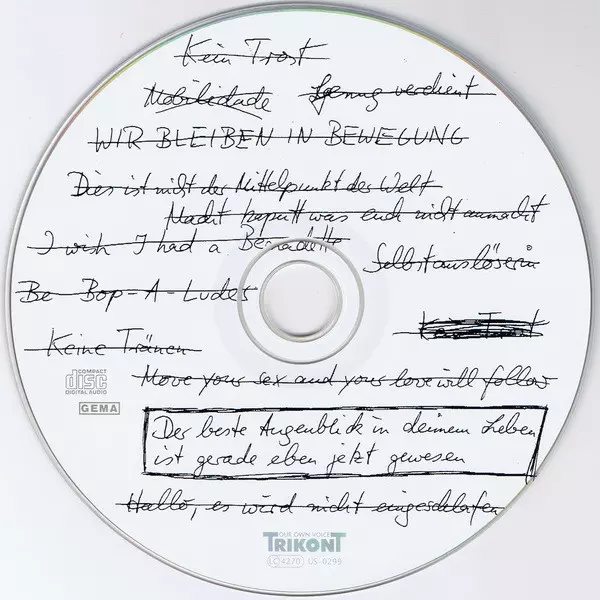 Kein Trost
Mobilidade Genug verdient
WIR BLEIBEN IN BEWEGUNG
Dies ist nicht der Mittelpunkt der Welt
Macht kaputt was euch nicht anmacht
I wish I had a Bernadette
Selbstauslöserin
Be-Bop-A-Ludes
Kein Trost
Keine Tränen
Move your sex and your love will follow
COMPACT
disc
DIGITAL AUDIO
GEMA
Der beste Augenblick in deinem Leben
ist gerade eben jetzt gewesen
Hallo, es wird nicht eingeschlafen
OUR OWN VOICE
TRIKONT
LC 4270 US-0299